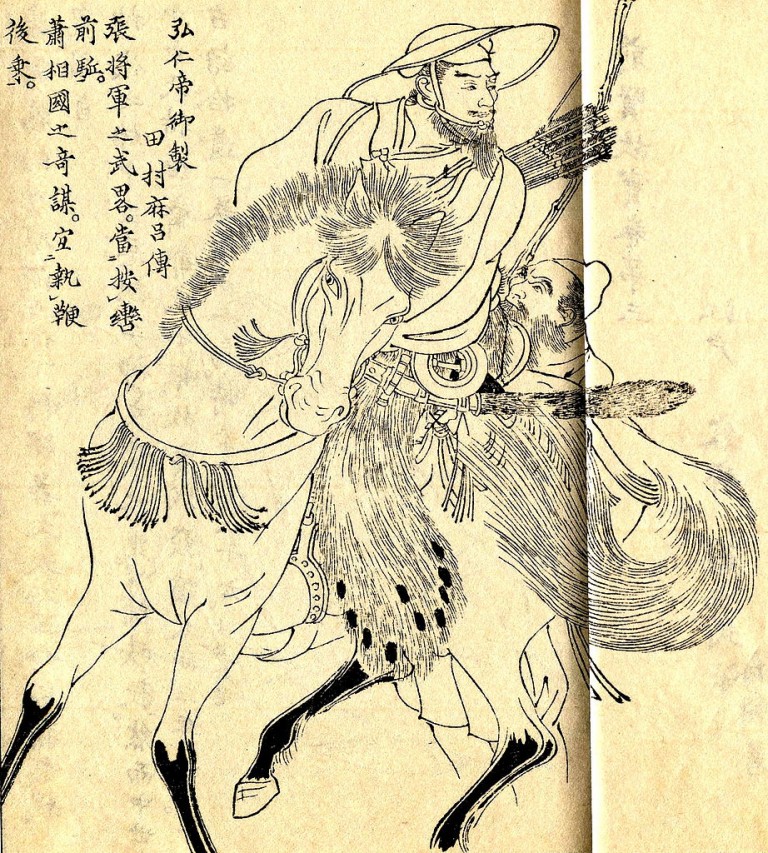 弘仁帝御製
田村麻呂傳
張將軍之武畧。當二按レ轡
前駈。
蕭相國之奇謀。宜二執レ鞭
後乗。